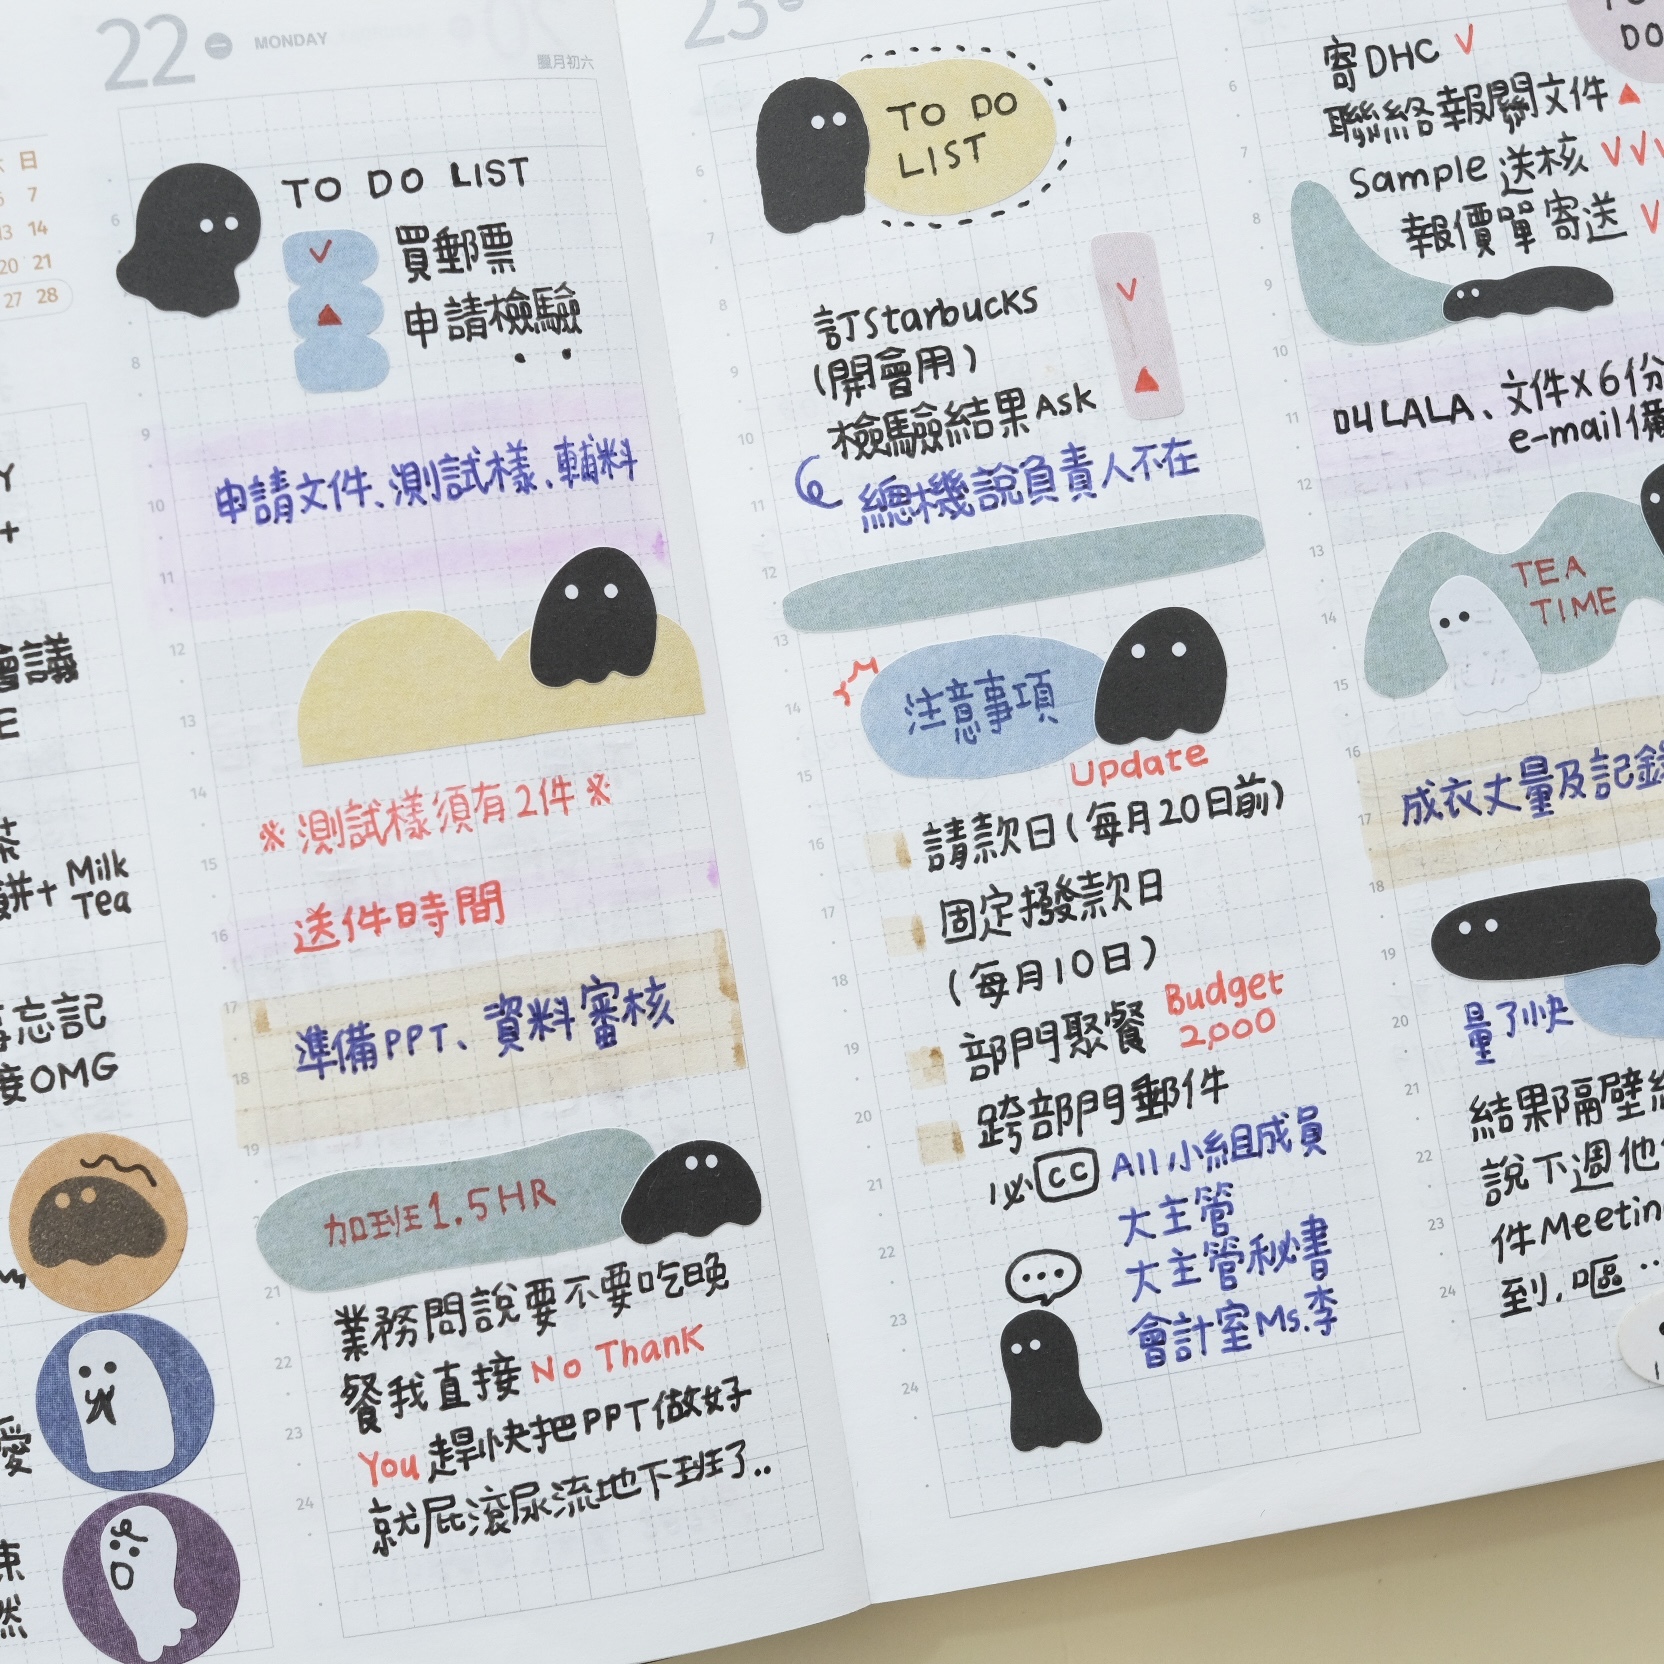 日
7
13 14
20 21
27 28
Y
+
會議
E
茶
餅+ Milk
Tea
忘記
接OMG
愛
東
然
22 一 MONDAY
臘月初六
TO DO LIST
V 買郵票
▲ 申請檢驗
申請文件、測試樣、輔料
※測試樣須有2件※
送件時間
準備PPT、資料審核
加班1.5HR
業務問說要不要吃晚
餐我直接 No Thank
You 趕快把PPT做好
就屁滾尿流地下班了..
6
8
9
10
11
12
13
14
15
16
17
18
19
21
22
23
24
23
TO DO
LIST
訂Starbucks V
(開會用)
檢驗結果Ask ▲
總機說負責人不在
注意事項
Update
請款日(每月20日前)
固定撥款日
(每月10日)
部門聚餐 Budget
2,000
跨部門郵件
必CC All小組成員
大主管
大主管秘書
會計室Ms.李
6
7
8
9
10
11
12
13
14
15
16
17
18
19
20
21
22
23
24
DO
寄DHC V
聯絡報關文件▲
Sample送核 V V V
報價單寄送 V
叫LALA、文件x6份
e-mail備
TEA
TIME
成衣丈量及記錄
量了快
結果隔壁
說下週他
件Meetin
到,嘔…
6
7
8
9
10
11
12
13
14
15
16
17
18
19
20
21
22
23
24